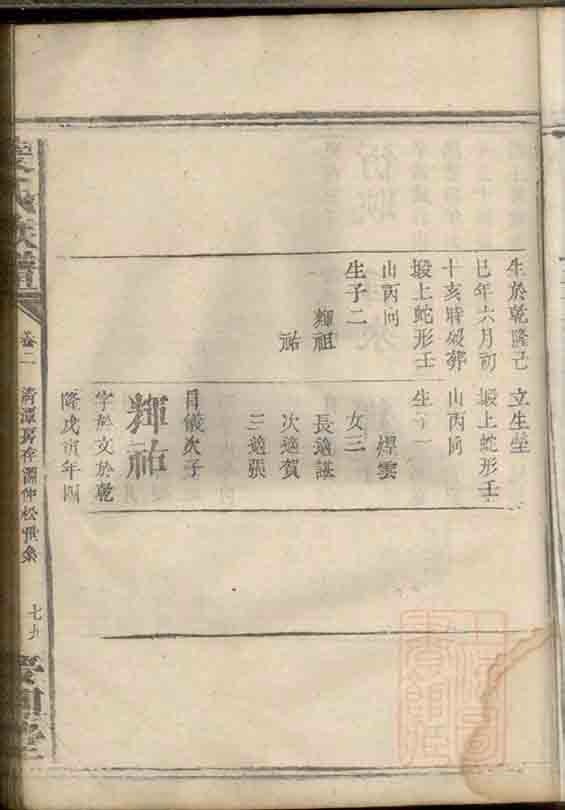 生於乾隆己
巳年六月初
十亥時歿葬
塅上蛇形壬
山丙向
生子二
輝祖
祐
立生塋
塅上蛇形壬
山丙向
生子一
煋雲
女三
長適諶
次適賀
三適張
月儀次子
輝祐
字 文於乾
隆戊寅年四
氏族譜
卷二
清潭房存淵仲松世系
七九